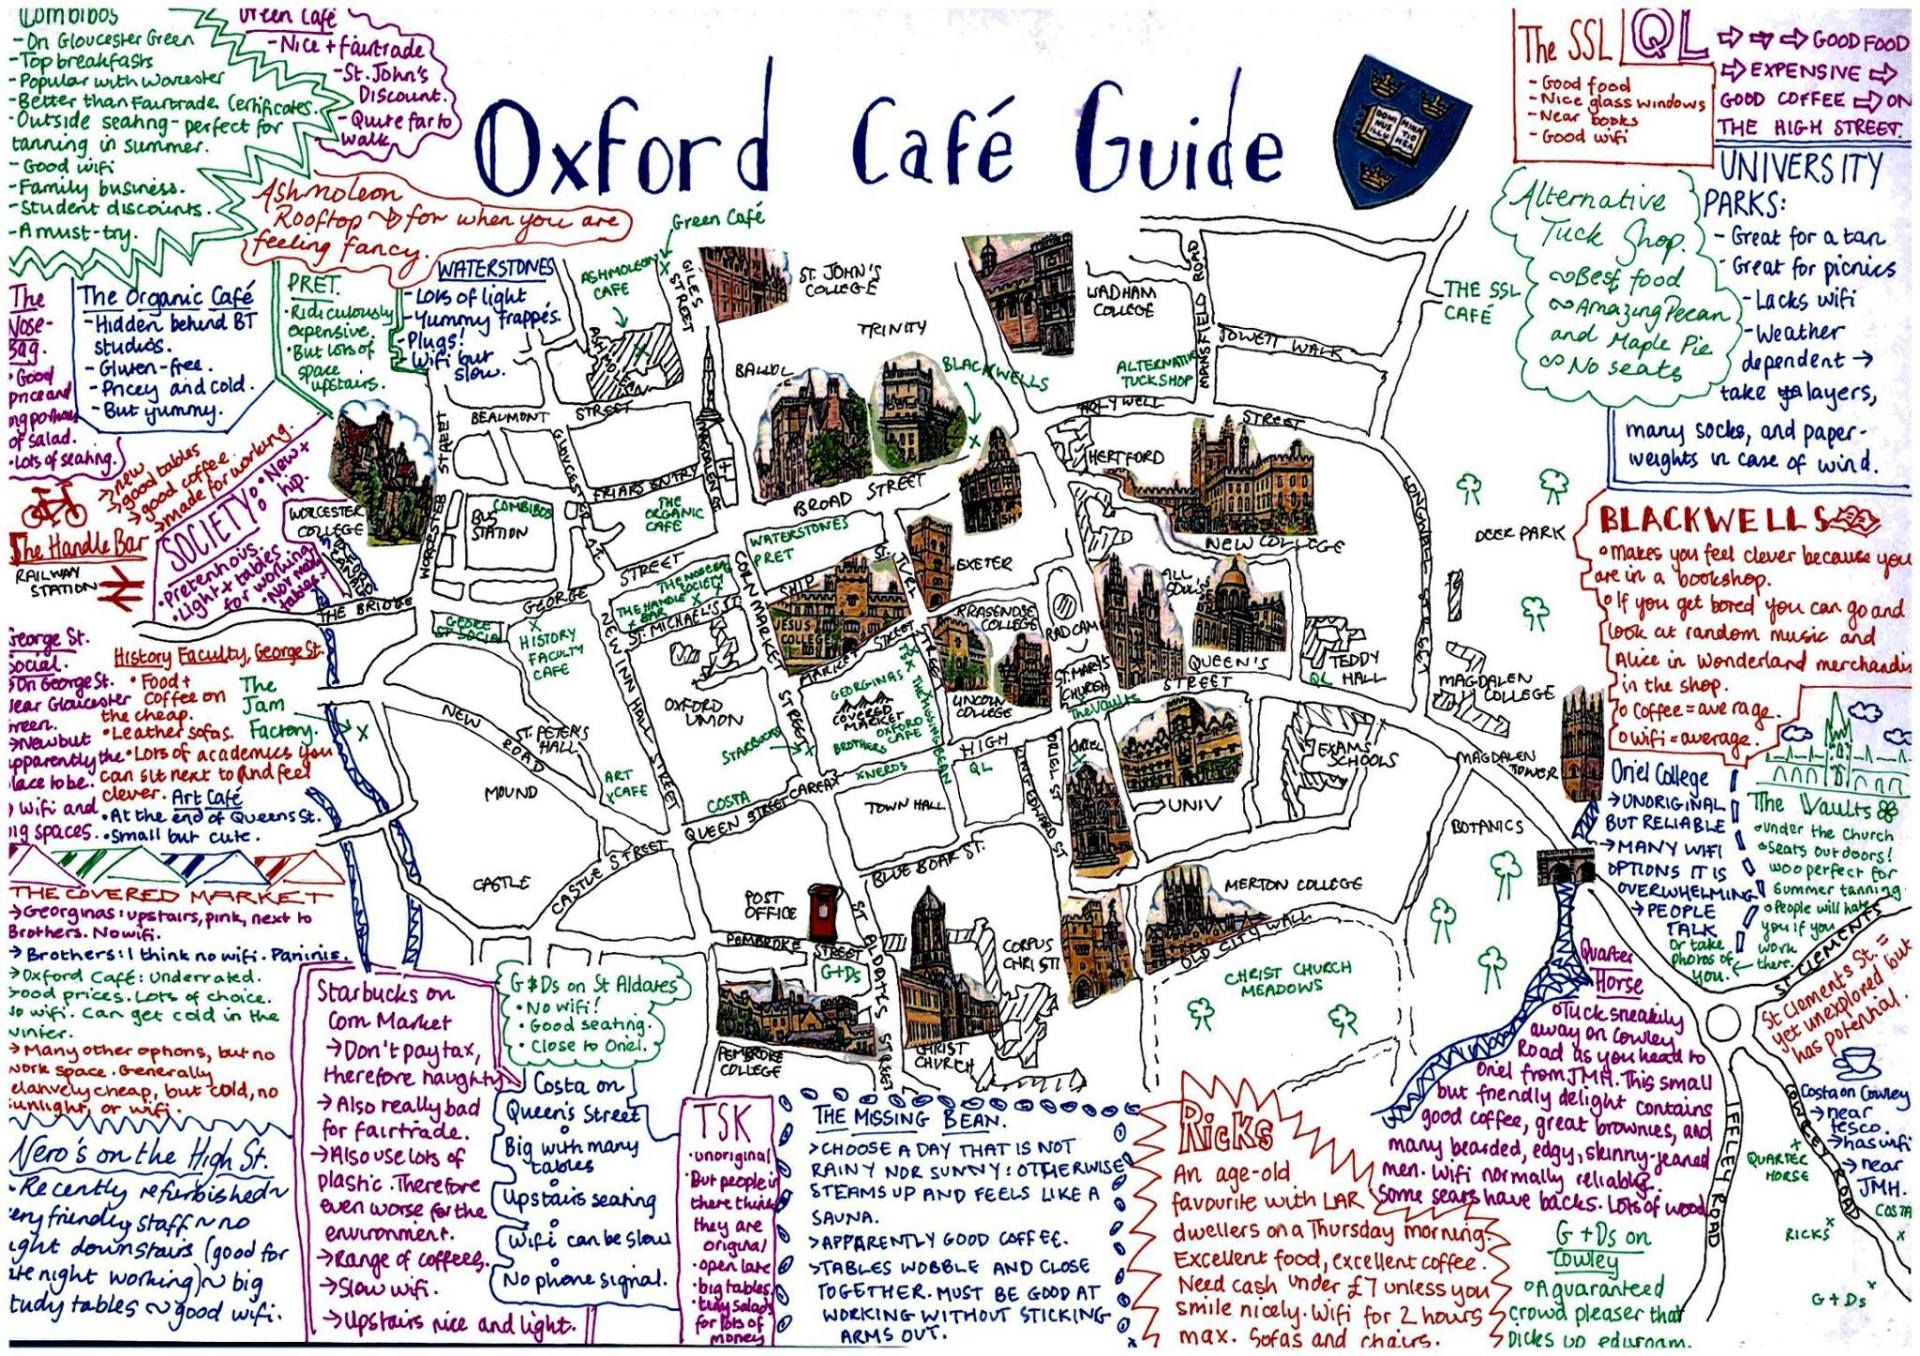 Combibos
-On Gloucester Green
-Top breakfasts
-Popular with Worcester
-Better than Fairtrade Certificates.
-Outside seating - perfect for
tanning in summer.
-Good wifi
-Family business.
-Student discounts.
-A must-try.
Green Café
-Nice + fairtrade
-St. John's
Discount.
-Quite far to
walk
Ashmoleon
Rooftop → for when you are
feeling fancy.
Oxford Café Guide
DOMI MINA
NUS TIO
ILLU MEA
The SSL
- Good food
- Nice glass windows
- Near books
- Good wifi
QL
⇨ ⇨ ⇨ GOOD FOOD
⇨ EXPENSIVE ⇨
GOOD COFFEE ⇨ ON
THE HIGH STREET.
UNIVERSITY
PARKS:
- Great for a tan
- Great for picnics
- Lacks wifi
- Weather
dependent →
take layers,
many socks, and paper-
weights in case of wind.
Alternative
Tuck Shop.
Best food
Amazing Pecan
and Maple Pie
No seats
The
Nose-
Bag.
• Good
price and
ng portions
of salad.
• Lots of seating.
The Organic Café
- Hidden behind BT
studios.
- Gluten-free.
- Pricey and cold.
- But yummy.
PRET.
• Ridiculously
expensive.
• But lots of
space
upstairs.
WATERSTONES
- Lots of light
- Yummy frappés.
- Plugs!
- Wifi but
slow.
→ new
→ good tables
→ good coffee.
→ made for working.
The Handle Bar
RAILWAY
STATION
SOCIETY:
• New +
hip.
• Pretentious.
• Light + tables
for working
• Not many
tables.
George St.
Social.
→ On George St.
near Gloucester
Green.
→ New but
apparently the
place to be.
→ Wifi and
big spaces.
History Faculty, George St.
• Food +
Coffee on
the cheap.
• Leather sofas.
• Lots of academics you
can sit next to and feel
clever.
The
Jam
Factory.
Art Café
• At the end of Queens St.
• Small but cute.
THE COVERED MARKET
→ Georginas: upstairs, pink, next to
Brothers. No wifi.
→ Brothers: I think no wifi. Paninis.
→ Oxford Café: Underrated.
Good prices. Lots of choice.
No wifi. Can get cold in the
winter.
→ Many other options, but no
work space. Generally
relatively cheap, but cold, no
sunlight, or wifi.
Nero's on the High St.
- Recently refurbished ~
very friendly staff ~ no
light downstairs (good for
late night working) ~ big
study tables ~ good wifi.
Starbucks on
Corn Market
→ Don't pay tax,
therefore naughty
→ Also really bad
for fairtrade.
→ Also use lots of
plastic. Therefore
even worse for the
environment.
→ Range of coffees.
→ Slow wifi.
→ Upstairs nice and light.
G&Ds on St Aldates
• No wifi!
• Good seating.
• Close to Oriel.
Costa on
Queen's Street
Big with many
tables
Upstairs seating
Wifi can be slow
No phone signal.
TSK
• unoriginal
• But people in
there think
they are
original
• open late
• big tables
• tiny salads
for lots of
money
THE MISSING BEAN.
> CHOOSE A DAY THAT IS NOT
RAINY NOR SUNNY: OTHERWISE
STEAMS UP AND FEELS LIKE A
SAUNA.
> APPARENTLY GOOD COFFEE.
> TABLES WOBBLE AND CLOSE
TOGETHER. MUST BE GOOD AT
WORKING WITHOUT STICKING
ARMS OUT.
Ricks
An age-old
favourite with LAR
dwellers on a Thursday morning.
Excellent food, excellent coffee.
Need cash under £7 unless you
smile nicely. Wifi for 2 hours
max. Sofas and chairs.
BLACKWELLS
• Makes you feel clever because you
are in a bookshop.
• If you get bored you can go and
look at random music and
Alice in Wonderland merchandis
in the shop.
• Coffee = average.
• Wifi = average.
Oriel College
→ UNORIGINAL
BUT RELIABLE
→ MANY WIFI
OPTIONS IT IS
OVERWHELMING
→ PEOPLE
TALK
Or take
photos of
you.
The Vaults
• Under the Church
• Seats outdoors!
woo perfect for
Summer tanning.
• People will hate
you if you
work
there.
Quarter
Horse
Tuck sneakily
away on Cowley
Road as you head to
Oriel from JMH. This small
but friendly delight contains
good coffee, great brownies, and
many bearded, edgy, skinny-jeaned
men. Wifi normally reliable.
Some seats have backs. Lots of wood
St Clement St. =
yet unexplored but
has potential.
Costa on Cowley
→ near
Tesco.
→ has wifi
→ near
JMH.
G + Ds on
Cowley
• A guaranteed
crowd pleaser that
picks up eduroam.
Green Café
ASHMOLEON
CAFE
ASHMOLEAN
GILES
STREET
ST. JOHN'S
COLLEGE
TRINITY
BALLIOL
BLACKWELLS
WADHAM
COLLEGE
ALTERNATIVE
TUCKSHOP
MANSFIELD ROAD
JOWETT WALK
THE SSL
CAFÉ
HOLYWELL STREET
LONGWALL STREET
BEAUMONT STREET
GLOUCESTER ST.
MAGDALEN ST
FRIARS ENTRY
WORCESTER
COLLEGE
WORCESTER STREET
BUS
STATION
COMBIBOS
THE
ORGANIC
CAFE
BROAD STREET
WATERSTONES
PRET
HERTFORD
NEW COLLEGE
DEER PARK
THE BRIDGE
GEORGE STREET
GEORGE
ST SOCIAL
HISTORY
FACULTY
CAFE
THE NOSEBAG
SOCIETY
THE HANDLE
BAR
ST. MICHAEL'S ST.
CORNMARKET STREET
SHIP ST.
TURL STREET
EXETER
JESUS
COLLEGE
MARKET STREET
BRASENOSE
COLLEGE
RAD CAM
ALL
SOUL'S
QUEEN'S
TEDDY
HALL
QL
MAGDALEN
COLLEGE
MAGDALEN
TOWER
OXFORD
UNION
NEW INN HALL STREET
ST. PETER'S
HALL
NEW
ROAD
MOUND
ART
CAFE
STARBUCKS
GEORGINAS
COVERED
MARKET
BROTHERS
OXFORD
CAFE
TSK
THE MISSING BEAN
LINCOLN
COLLEGE
ST. MARY'S
CHURCH
The Vaults
HIGH STREET
QL
NERDS
CAREAX
COSTA
QUEEN STREET
TOWN HALL
KING EDWARD ST
ORIEL ST
ORIEL
UNIV
EXAMS
SCHOOLS
BOTANICS
CASTLE
CASTLE STREET
BLUE BOAR ST.
POST
OFFICE
PEMBROKE STREET
G+Ds
ST ALDATES STREET
PEMBROKE
COLLEGE
CHRIST
CHURCH
CORPUS
CHRISTI
MERTON COLLEGE
OLD CITY WALL
CHRIST CHURCH
MEADOWS
ST CLEMENTS
IFFLEY ROAD
COWLEY ROAD
QUARTER
HORSE
COSTA
RICKS
G+Ds